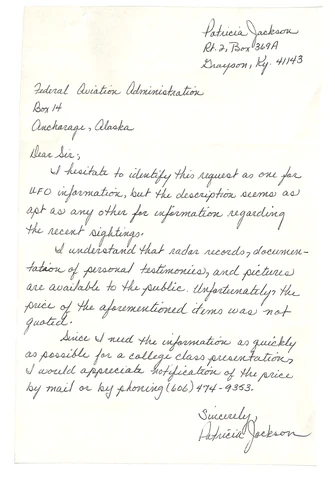 Patricia Jackson
Rt. 2, Box 369A
Grayson, Ky. 41143
Federal Aviation Administration
Box 14
Anchorage, Alaska
Dear Sir,
I hesitate to identify this request as one for
UFO information, but the description seems as
apt as any other for information regarding
the recent sightings.
I understand that radar records, documen-
tation of personal testimonies, and pictures
are available to the public. Unfortunately, the
price of the aforementioned items was not
quoted.
Since I need the information as quickly
as possible for a college class presentation,
I would appreciate notification of the price
by mail or by phoning (606) 474-9353.
Sincerely,
Patricia Jackson